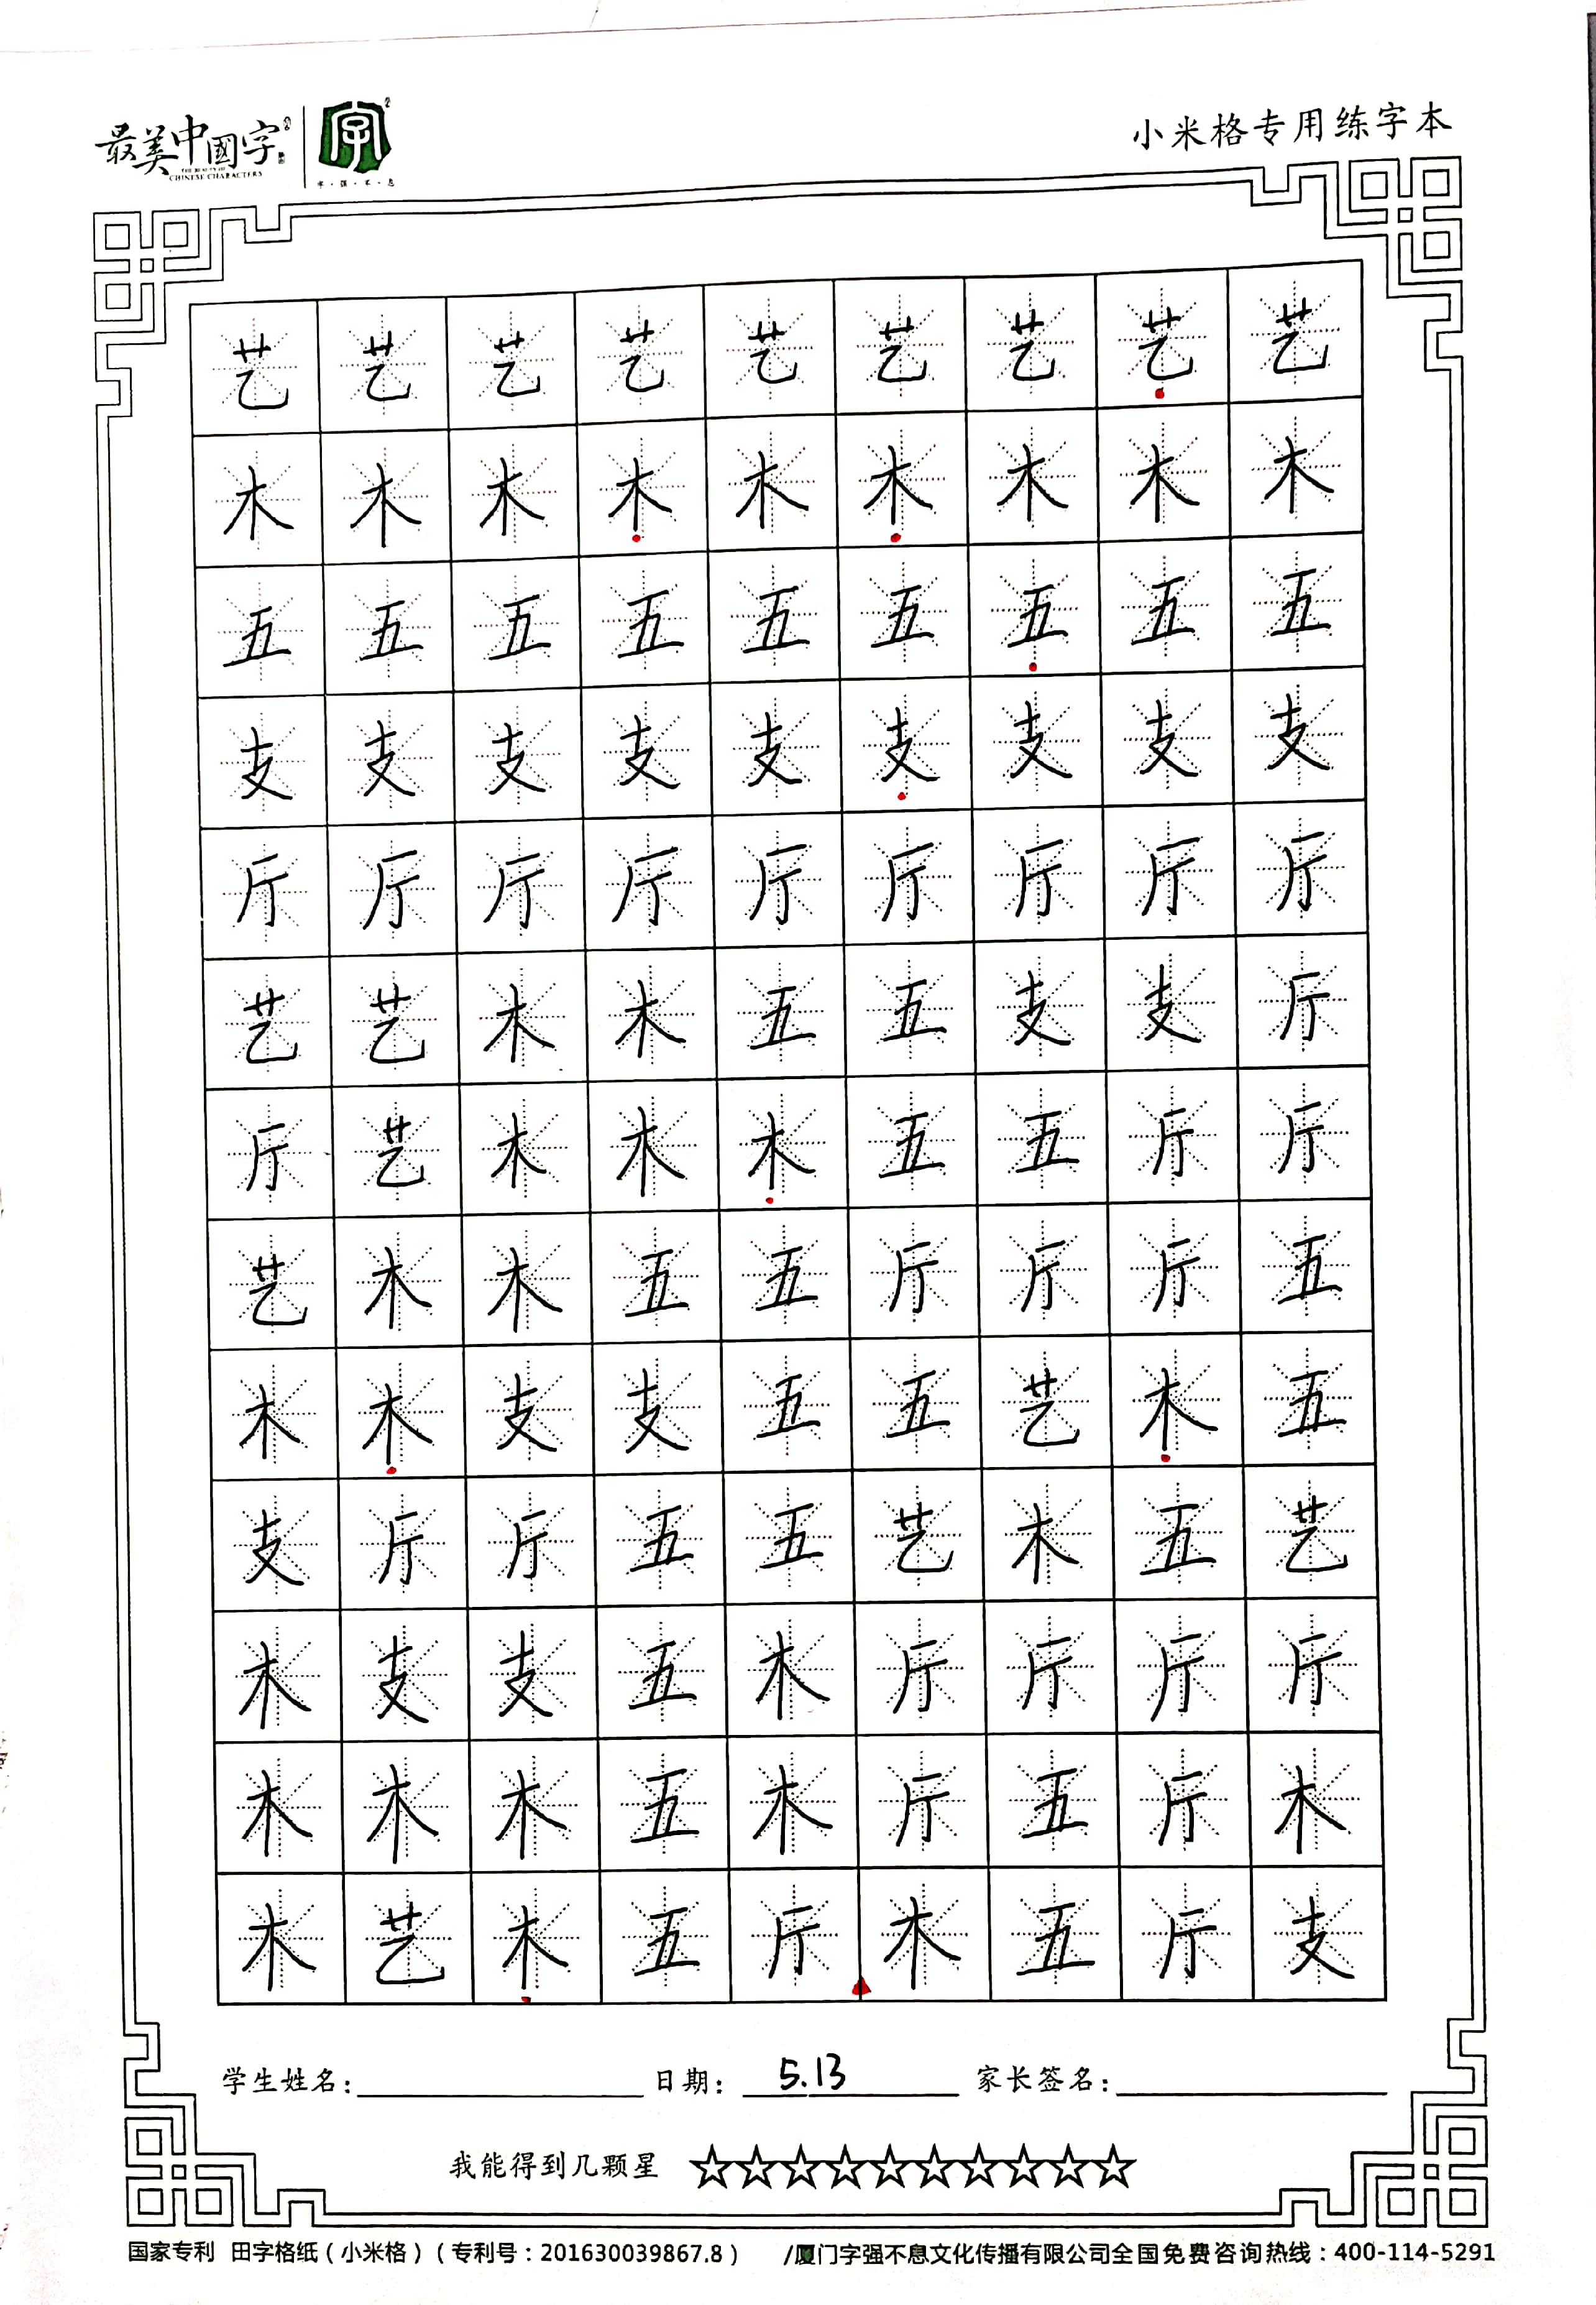 最美中國字
THE BEAUTY OF
CHINESE CHARACTERS
字
字·强·不·息
小米格专用练字本
艺艺艺艺艺艺艺艺艺
木木木木木木木木木
五五五五五五五五五
支支支支支支支支支
厅厅厅厅厅厅厅厅厅
艺艺木木五五支支厅
厅艺木木木五五厅厅
艺木木五五厅厅厅五
木木支支五五艺木五
支厅厅五五艺木五艺
木支支五木厅厅厅厅
木木木五木厅五厅木
木艺木五厅木五厅支
学生姓名: 日期: 5.13 家长签名:
我能得到几颗星 ☆☆☆☆☆☆☆☆☆☆
国家专利 田字格纸(小米格)(专利号:201630039867.8) /厦门字强不息文化传播有限公司全国免费咨询热线:400-114-5291